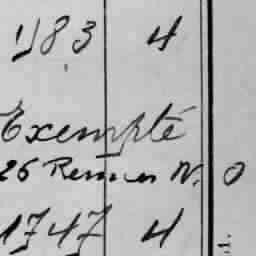 1183 4
Exempté
26 Rennes N. 0
1747 4